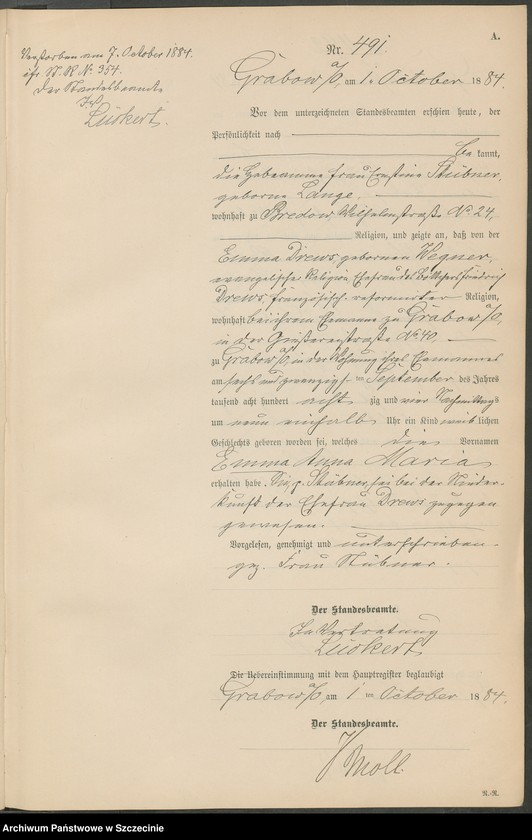 Verstorben am 7. October 1884.
St. R. No. 354.
Der Standesbeamte
In V.
Lückert.
A.
Nr. 491.
Grabow a/O, am 1 October 1884.
Vor dem unterzeichneten Standesbeamten erschien heute, der
Persönlichkeit nach
be kannt,
die Hebeamme Frau Ernstine Stübner,
geborne Lange.
wohnhaft zu Bredow, Wilhelmstraße No. 24,
Religion, und zeigte an, daß von der
Emma Drews, gebornen Wegner,
evangelischer Religion, Ehefrau des Böttchers Friedrich
Drews, französisch-reformirter Religion,
wohnhaft bei ihrem Ehemanne zu Grabow a/O,
in der Gießereistraße No. 40,
zu Grabow a/O, in der Wohnung ihres Ehemannes
am sechs und zwanzig sten September des Jahres
tausend acht hundert acht zig und vier Nachmittags
um neun einhalb Uhr ein Kind weib lichen
Geschlechts geboren worden sei, welches die Vornamen
Emma Anna Maria
erhalten habe. Sie, p. Stübner, sei bei der Nieder-
kunft der Ehefrau Drews zugegen
gewesen.
Vorgelesen, genehmigt und unterschrieben.
gez. Frau Stübner.
Der Standesbeamte.
In Vertretung
Lückert
Die Uebereinstimmung mit dem Hauptregister beglaubigt
Grabow a/O, am 1 ten October 1884.
Der Standesbeamte.
Moll.
N.-R.
Archiwum Państwowe w Szczecinie